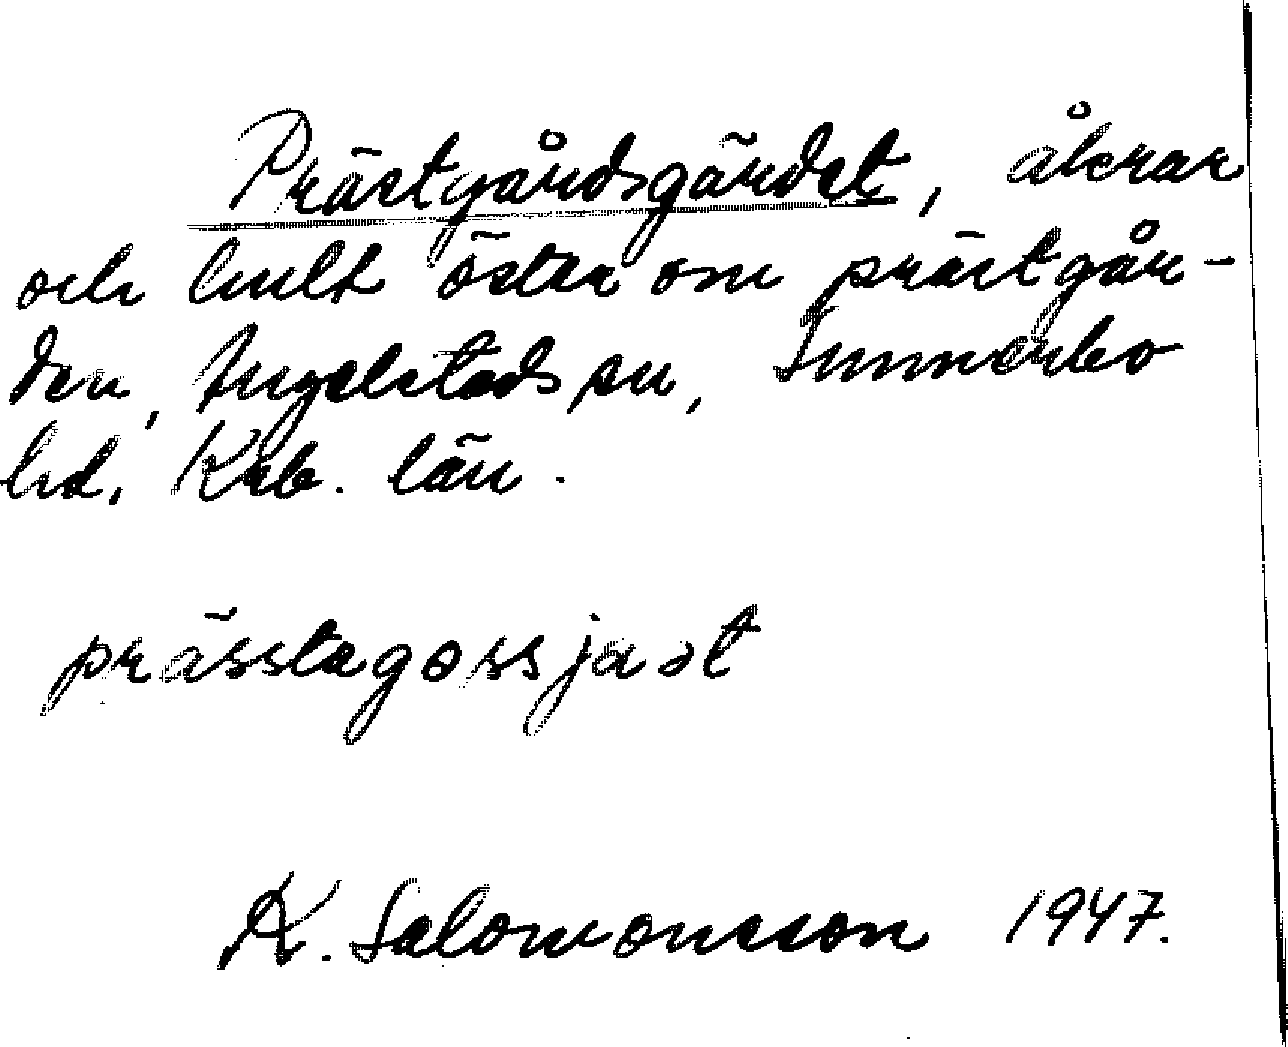 Prästgårdsgärdet, åkrar
och hult öster om prästgår-
den, Angelstads sn, Sunnerbo
hd. Krb. län.
prässtagossjaət
K. Salomonsson 1947.